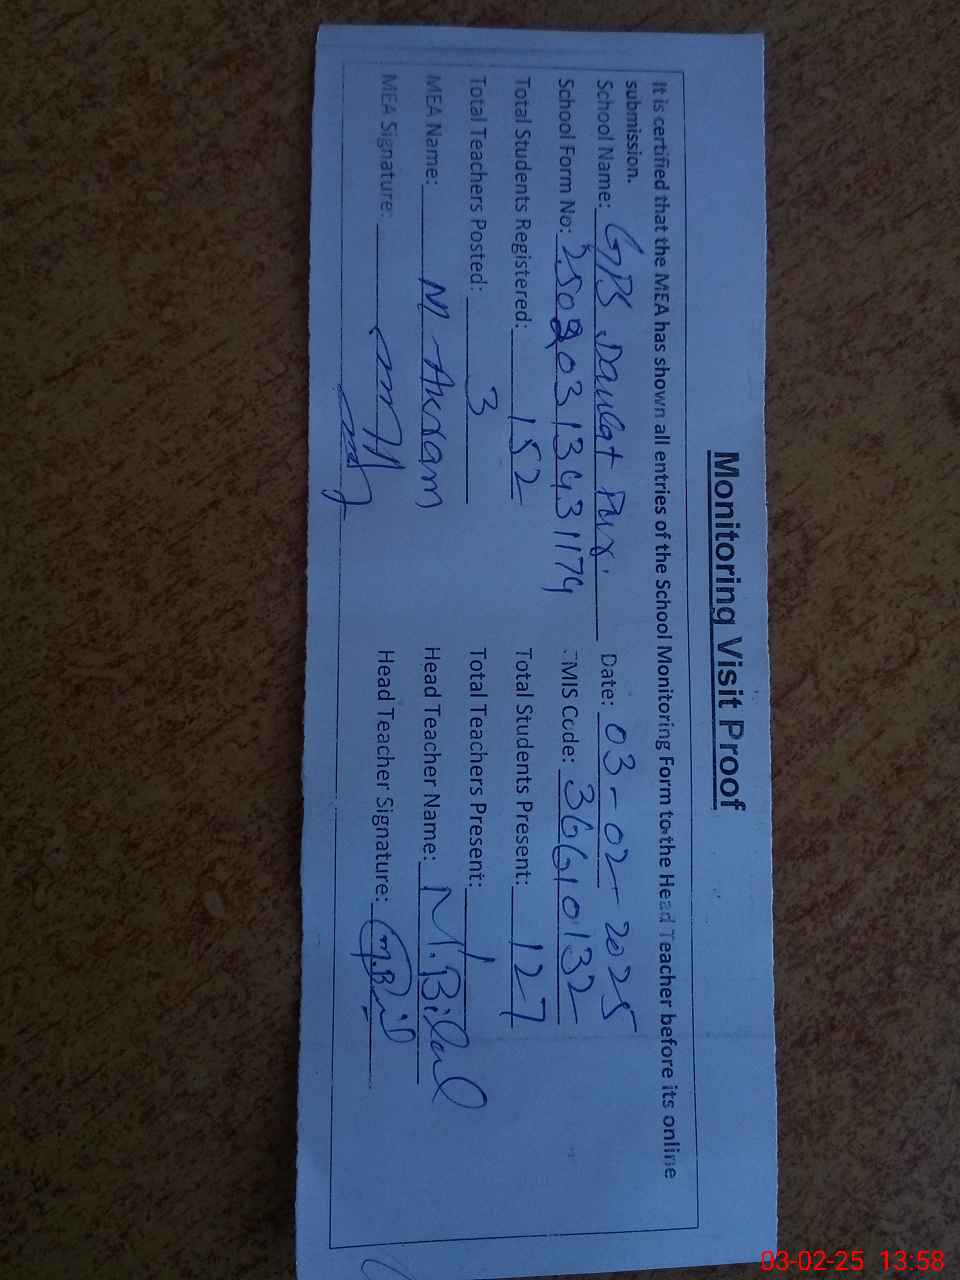 Monitoring Visit Proof
It is certified that the MEA has shown all entries of the School Monitoring Form to the Head Teacher before its online
submission.
School Name: GPS Daulat Pur. Date: 03-02-2025
School Form No: MIS Code: 36610132
Total Students Registered: 152 Total Students Present: 127
Total Teachers Posted: 3 Total Teachers Present: 1
MEA Name: M. Akram Head Teacher Name: M. Bilal
MEA Signature: Head Teacher Signature: M.Bil
03-02-25 13:58